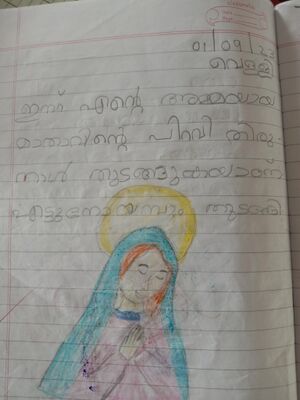 01/09/23
വെള്ളി
ഇന്ന് എന്റെ അമ്മയായ
മാതാവിന്റെ പിറവി തിരു-
നാൾ തുടങ്ങുകയാണ്
എട്ടുനോയമ്പും തുടങ്ങി